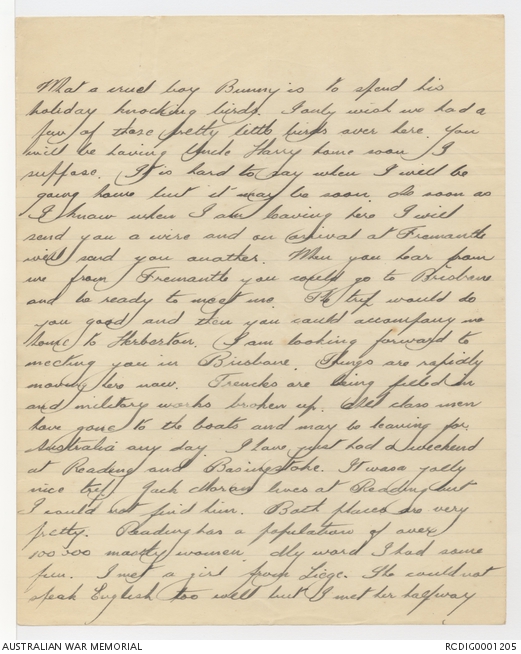 What a cruel boy Bunny is to spend his
holiday knocking birds. I only wish we had a
few of those pretty little birds over here. You
will be having Uncle Harry home soon I
suppose. It is hard to say when I will be
going home but it may be soon. As soon as
I know when I am leaving here I will
send you a wire and on arrival at Fremantle
will send you another. When you hear from
me from Fremantle you could go to Brisbane
and be ready to meet me. The trip would do
you good and then you could accompany me
home to Herberton. I am looking forward to
meeting you in Brisbane. Things are rapidly
moving here now. Trenches are being filled in
and military works broken up. All class men
have gone to the boats and may be leaving for
Australia any day. I have just had a weekend
at Reading and Basingstoke. It was a jolly
nice trip. Jack Moran lives at Redding but
I would not find him. Both places are very
pretty. Reading has a population of over
100 000 mostly women. My word I had some
fun. I met a girl from Liege. She could not
speak English too well but I met her halfway
AUSTRALIAN WAR MEMORIAL
RCDIG0001205